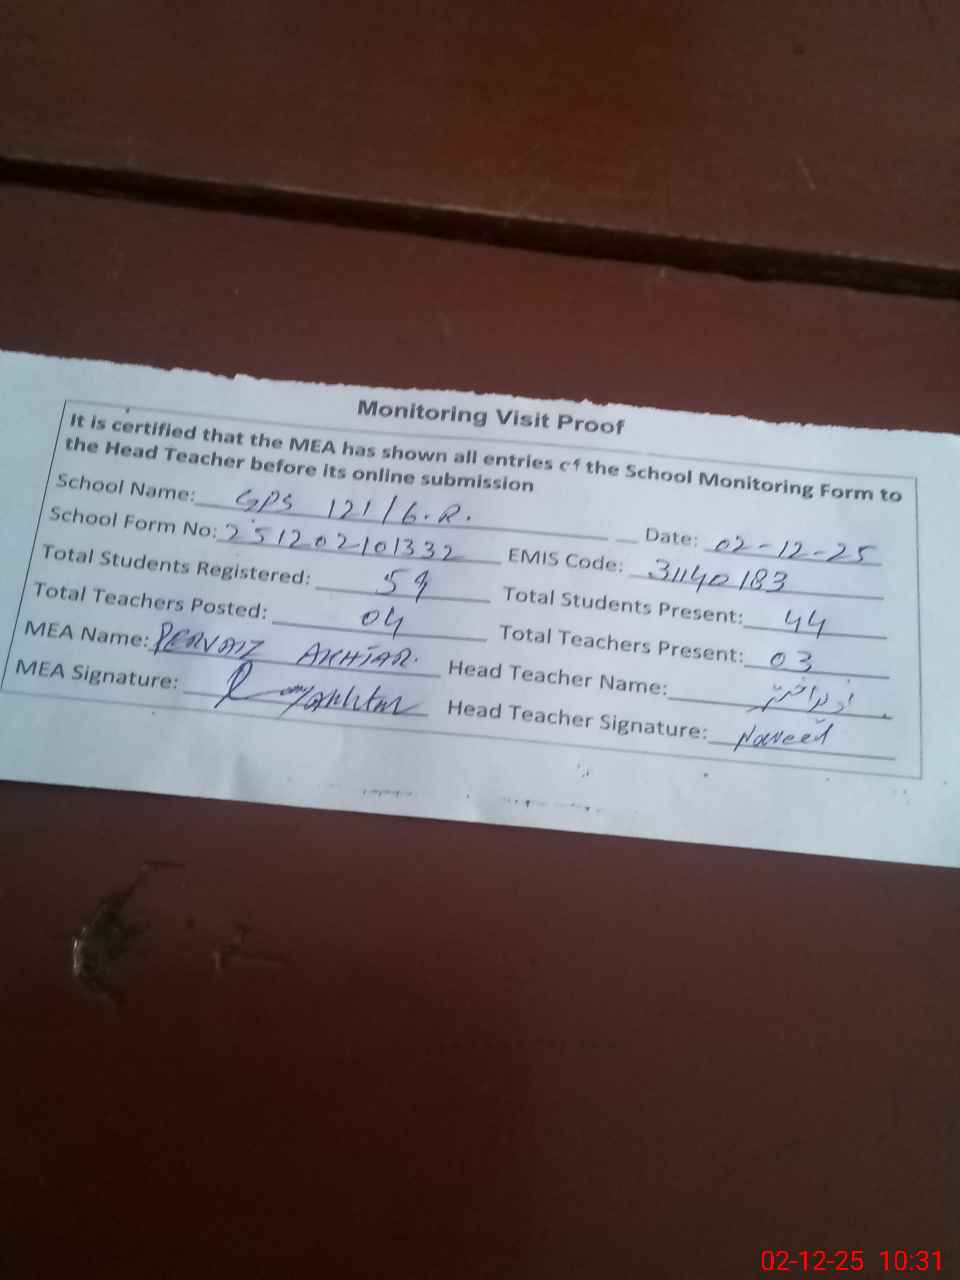 Monitoring Visit Proof
It is certified that the MEA has shown all entries of the School Monitoring Form to
the Head Teacher before its online submission
School Name: GPS 121/6.R. Date: 02-12-25
School Form No: 251202101332 EMIS Code: 31140183
Total Students Registered: 59 Total Students Present: 44
Total Teachers Posted: 04 Total Teachers Present: 03
MEA Name: PERVAIZ AKHTAR. Head Teacher Name:
MEA Signature: Head Teacher Signature: Naveed
02-12-25 10:31